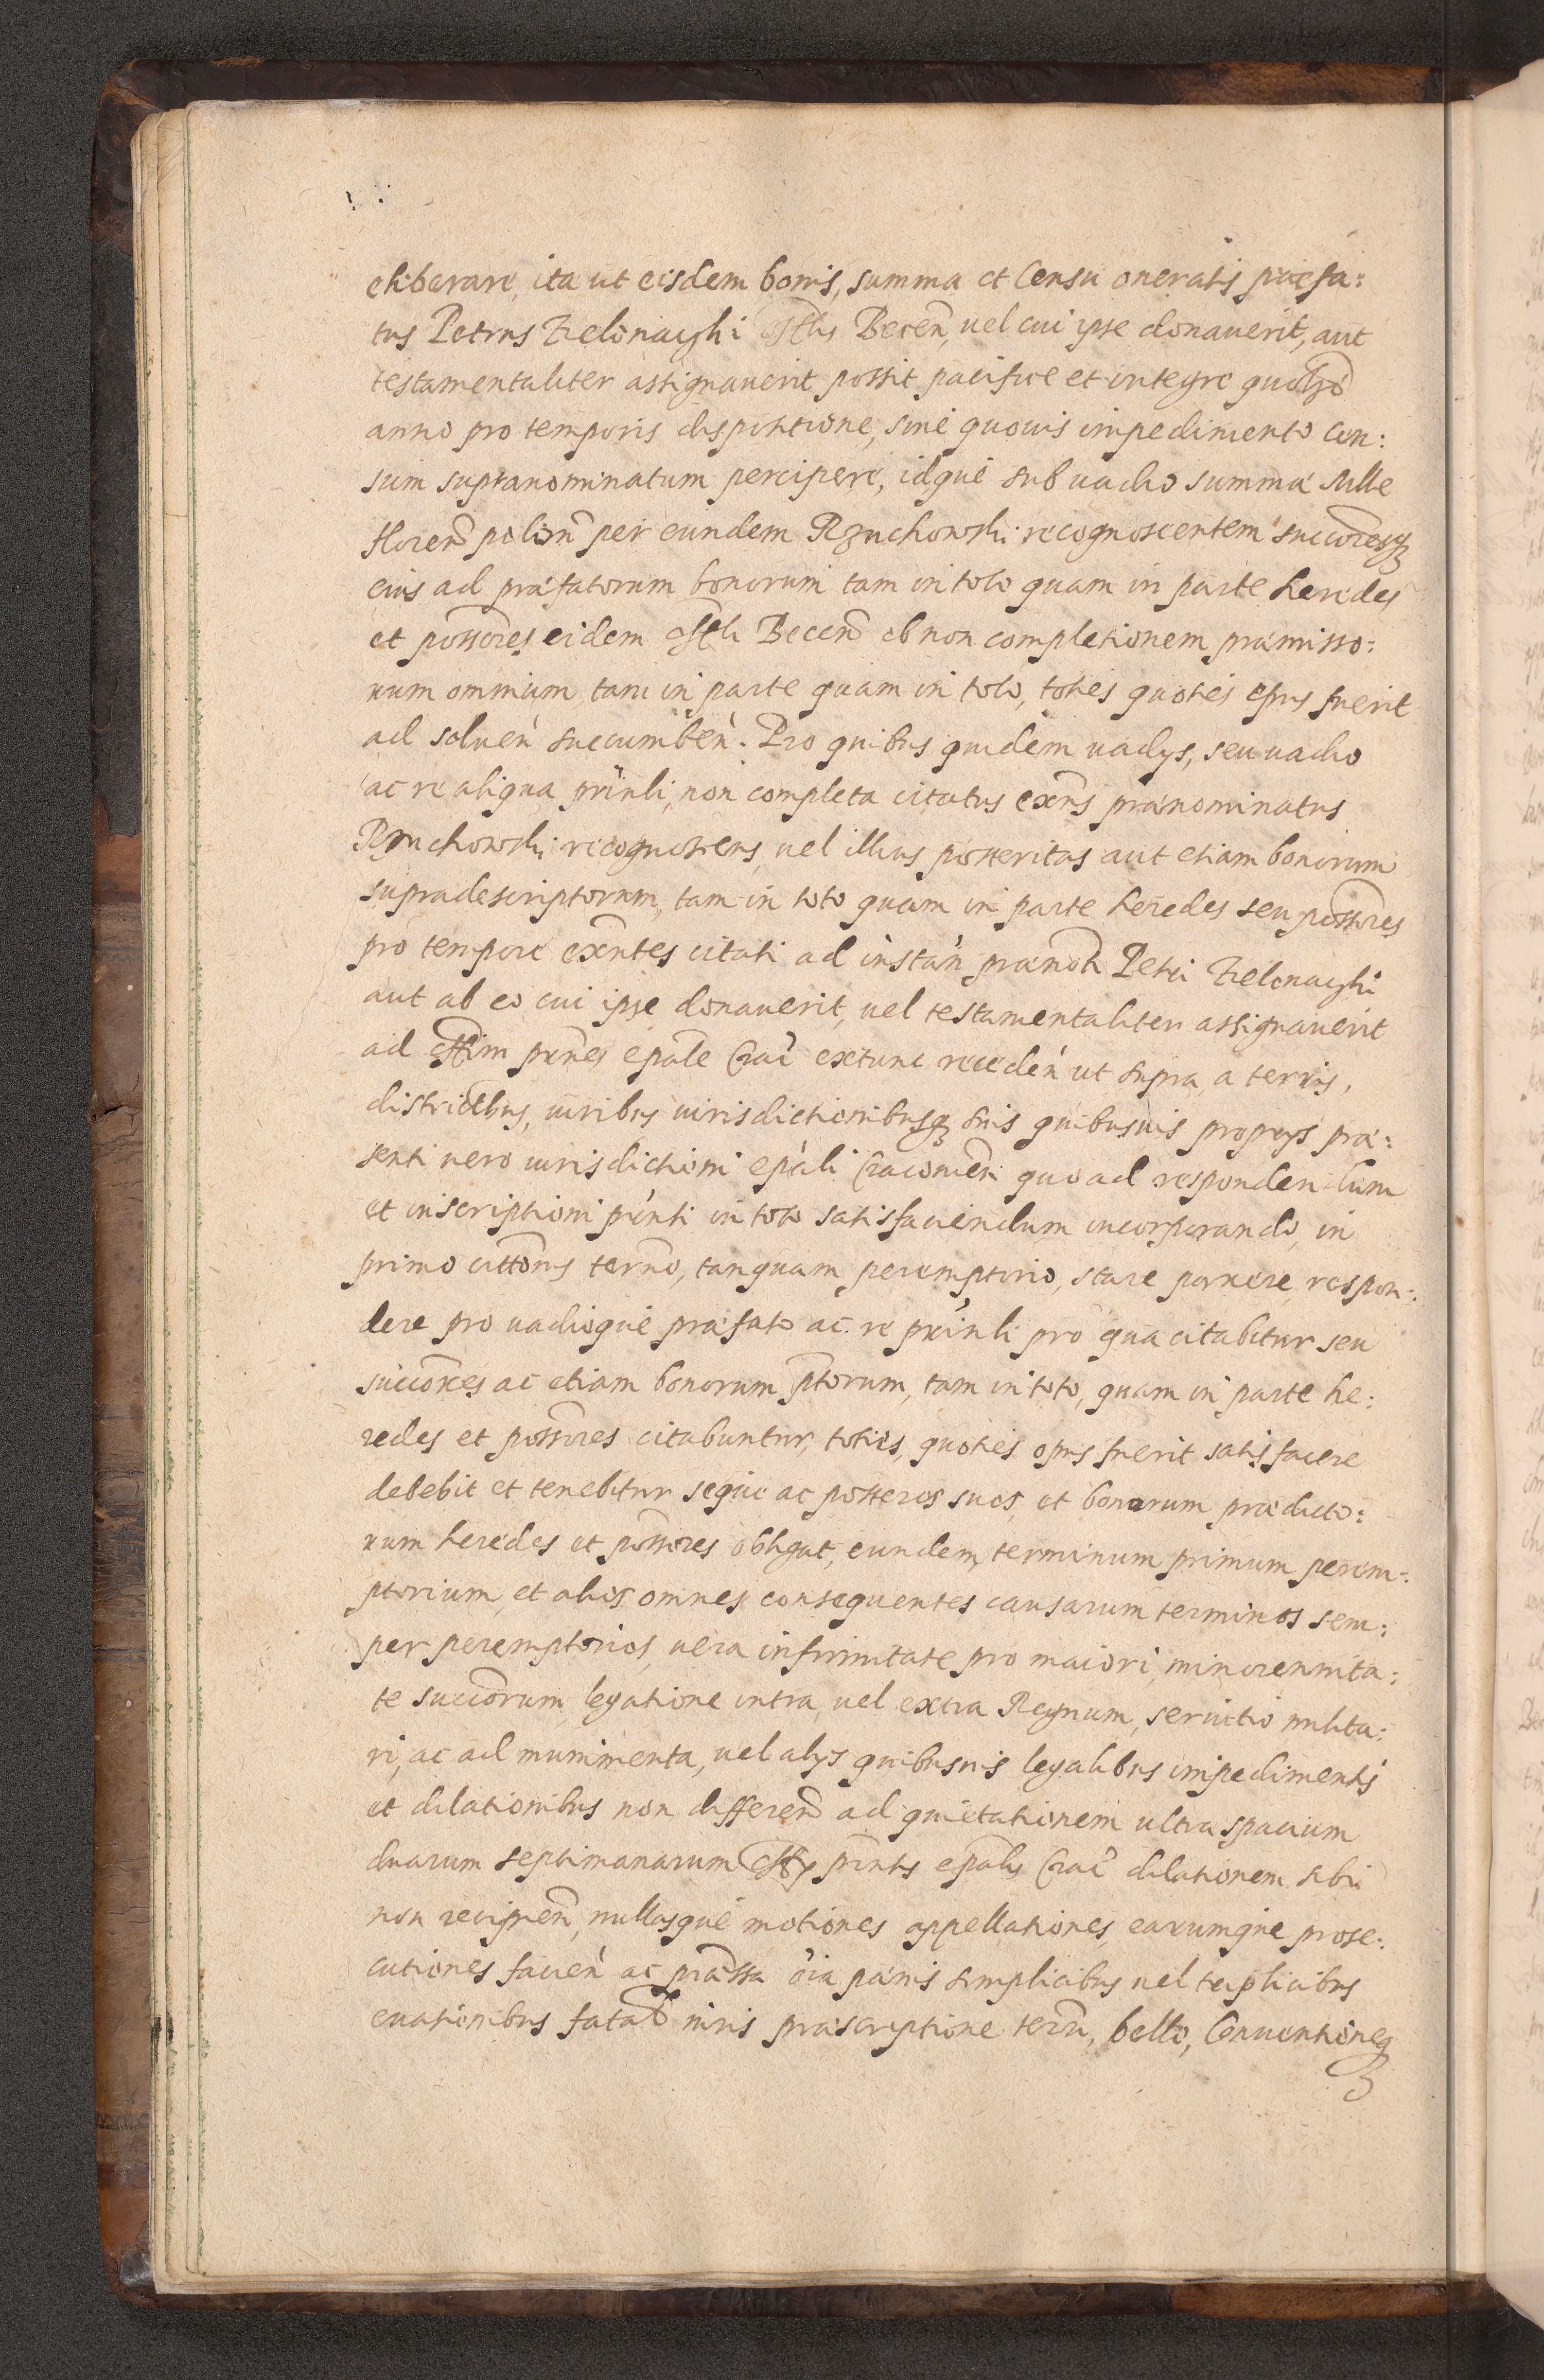 eliberare, ita ut eisdem bonis, summa et Censu oneratis praefa:
tus Petrus Zielonaczki Becen, uel cui ipse donauerit, aut
testamentaliter assignauerit possit pacifice et integre quolzo
anno pro temporis dispositione, sine quouis impedimento cen:
sum supranominatum percipere, idque sub uadio summa Mille
floren polon per eundem Rzuchowski recognoscentem succoresq
eius ad praefatorum bonorum tam in toto quam in parte heredes
et possores eidem Becen ob non completionem praemisso:
rum omnium tam in parte quam in toto, toties quoties opus fuerit
ad soluen succumben. Pro quibus quidem uadys, seu uadio
ac re aliqua prinli, non completa citatus exns praenominatus
Rzuchowski recognoscens, uel illius posteritas aut etiam bonorum
supradescriptorum, tam in toto quam in parte heredes seu possores
pro tempore exntes citati ad instan praenoti Petri Zielonaczki
aut ab eo cui ipse donauerit, uel testamentaliter assignauerit
ad offim epale Crac extunc receden ut supra a terris,
districtibus, iuribus iurisdictionibusq suis quibusuis proprys prae:
senti uero iurisdictioni epali Cracouien quo ad respondendum
et inscriptioni pnti in toto satisfaciendum incorporando, in
primo cittonis termo, tanquam peremptorio, stare parere respon:
dere pro uadioque praefato ac re prinli pro qua citabitur seu
succores ac etiam bonorum ptorum, tam in toto, quam in parte he:
redes et possores citabuntur, toties, quoties opus fuerit satisfacere
debebit et tenebitur seque ac posteros suos, et bonorum praedicto:
rum heredes et possores obligat, eundem terminum primum perem:
ptorium, et alios omnes consequentes causarum terminos sem:
per peremptorios, uera infirmitate pro maiori, minorennita:
te succorum legatione intra, uel extra Regnum, seruitio milita:
ri, ac ad munimenta, uel alys quibusuis legalibus impedimentis
et dilationibus non differen ad quietationem ultra spacium
duarum septimanarum epalis Crac dilationem sibi
non recipien, nullasque motiones appellationes, earumque prose:
cutiones facien ac praessa oia paenis simplicibus uel triplicibus
euationibus fatal iuris praescriptione terrae, bello, Conuentioneq